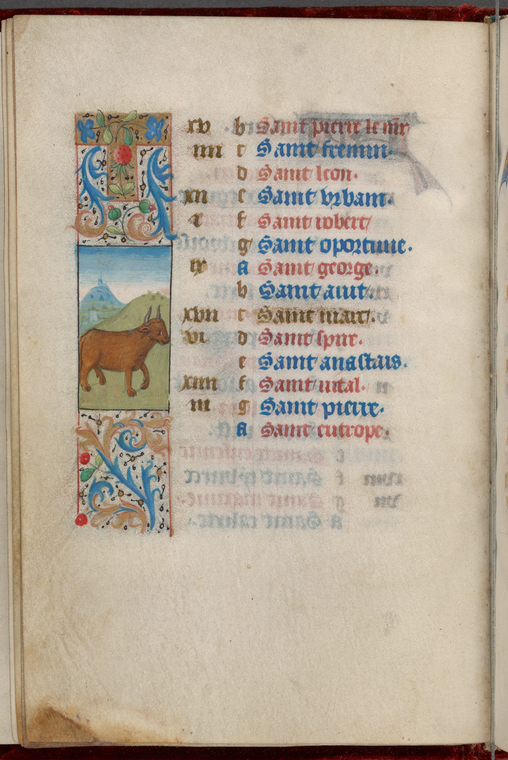 xv b Saint pierre le mr
iiii c Saint fremin.
d Saint leon.
xii e Saint vrbain.
f Saint robert
g Saint oportune.
ix A Saint george.
b Saint
xvii c Saint marc.
vi d Saint spire.
e Saint anastais.
xiiii f Saint vital.
iii g Saint pierre.
A Saint eutrope.